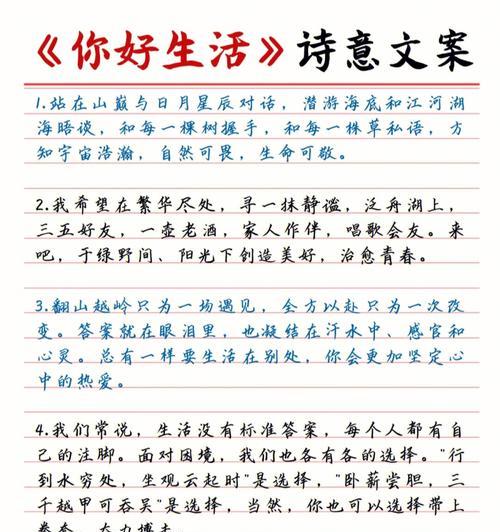 《你好生活》诗意文案
1.站在山巅与日月星辰对话，潜游海底和江河湖
海晤谈，和每一棵树握手，和每一株草私语，方
知宇宙浩瀚，自然可畏，生命可敬。
2.我希望在繁华尽处，寻一抹静谧，泛舟湖上，
三五好友，一壶老酒，家人作伴，唱歌会友。来
吧，于绿野间、阳光下创造美好，治愈青春。
3.翻山越岭只为一场遇见，全力以赴只为一次改
变。答案就在眼泪里，也凝结在汗水中、感官和
心灵。总有一样要生活在别处，你会更加坚定心
中的热爱。
4.我们常说，生活没有标准答案，每个人都有自
己的注脚。面对困境，我们也各有各的选择。"行
到水穷处，坐观云起时"是选择，"卧薪尝胆，三
千越甲可吞吴"是选择，当然，你也可以选择带上